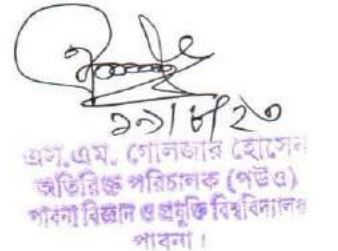 ১৯/৮/২৩
এস.এম. গোলজার হোসেন
অতিরিক্ত পরিচালক (পউও)
পাবনা বিজ্ঞান ও প্রযুক্তি বিশ্ববিদ্যালয়
পাবনা।